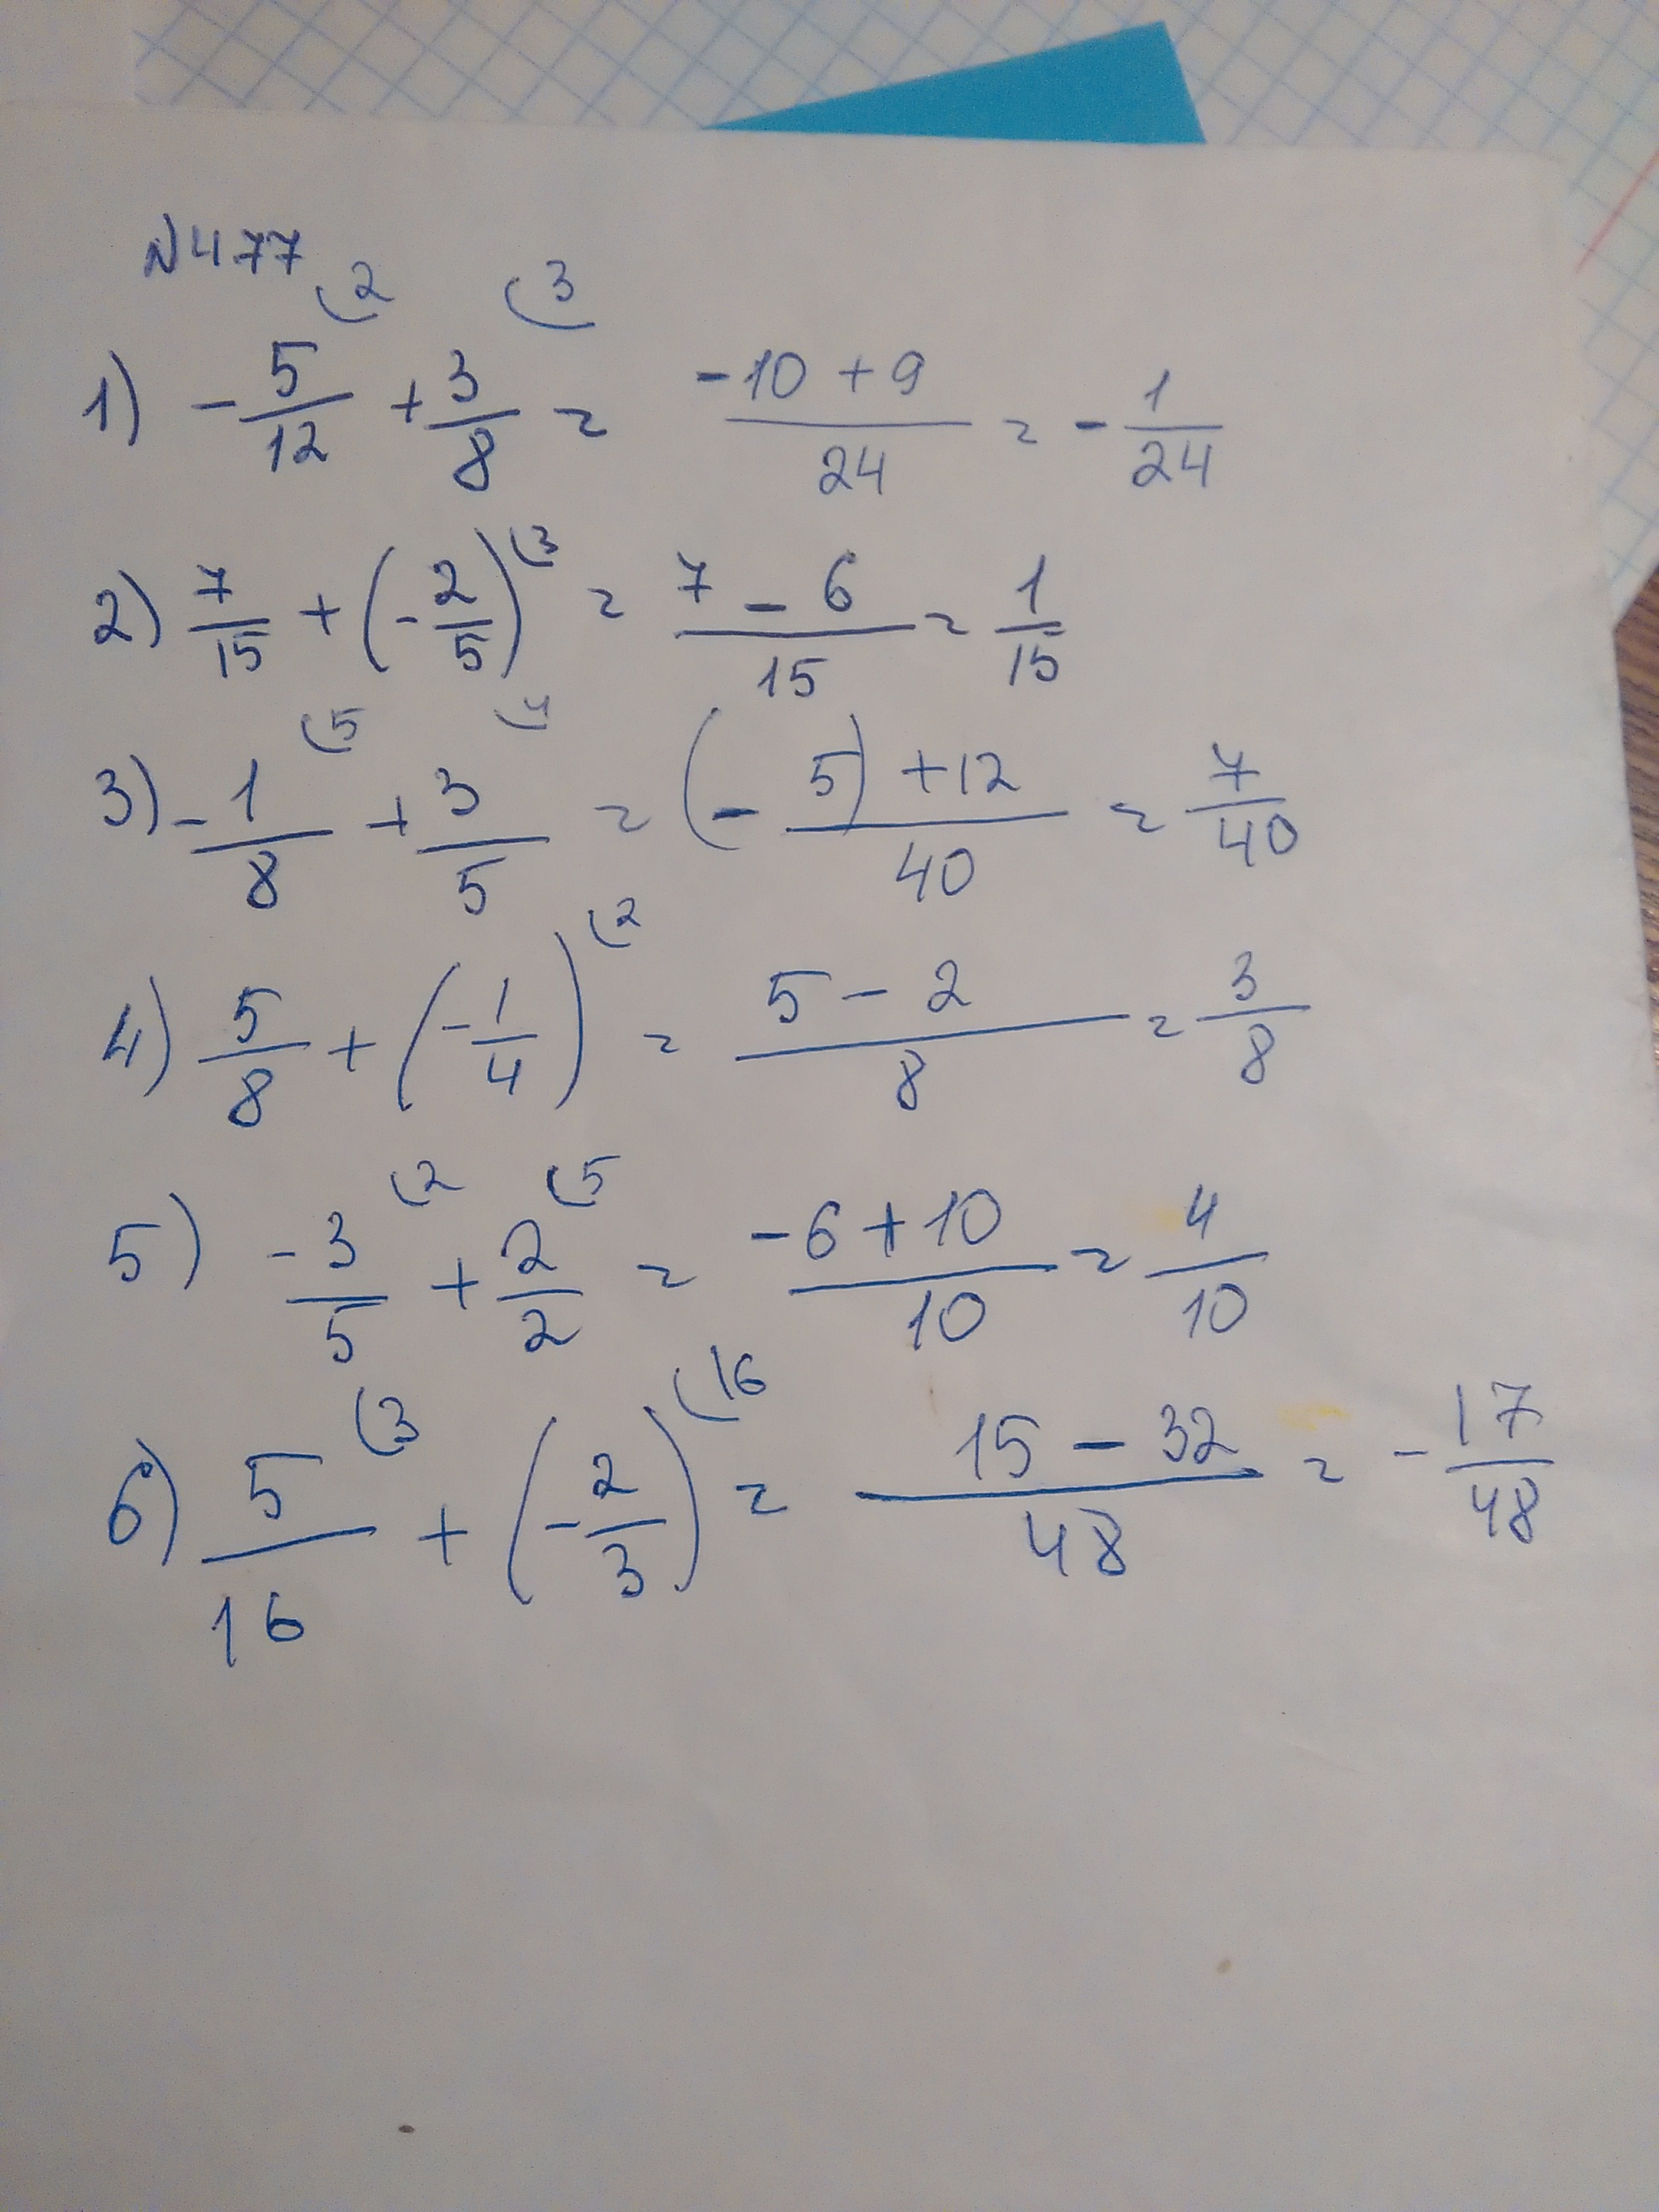 N477
1) -5/12 (2 + 3/8 (3 = -10 + 9/24 = -1/24
2) 7/15 + (-2/5) (3 = 7 - 6/15 = 1/15
3) -1/8 (5 + 3/5 (4 = (-5) + 12/40 = 7/40
4) 5/8 + (-1/4) (2 = 5 - 2/8 = 3/8
5) -3/5 (2 + 2/2 (5 = -6 + 10/10 = 4/10
6) 5/16 (3 + (-2/3) (16 = 15 - 32/48 = -17/48